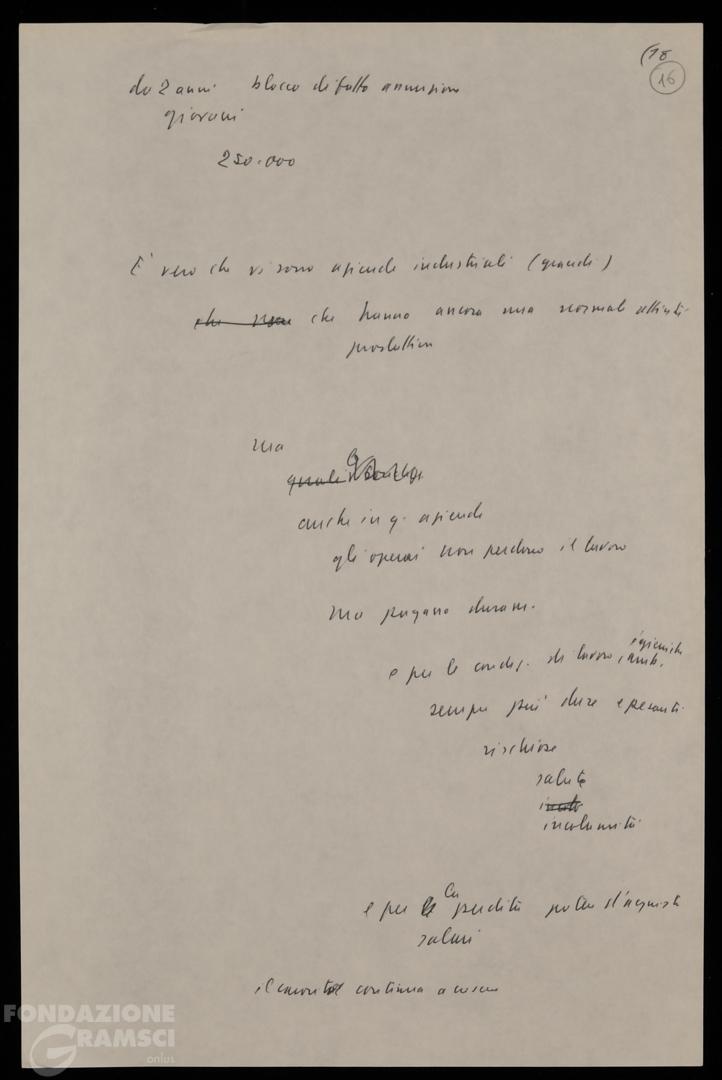 (18
16
da 2 anni blocco di fatto assunzioni
giovani
250.000
È vero che vi sono aziende industriali (grandi)
che non che hanno ancora una normale attività
produttiva
ma
quali
anche in q. aziende
gli operai non perdono il lavoro
ma pagano duram.
igienich
e per le condiz. di lavoro, amb.
sempre più dure e pesanti
rischiose
salute
incolumità
e per la perdita potere d'acquisto
salari
il continua a
FONDAZIONE
GRAMSCI
onlus